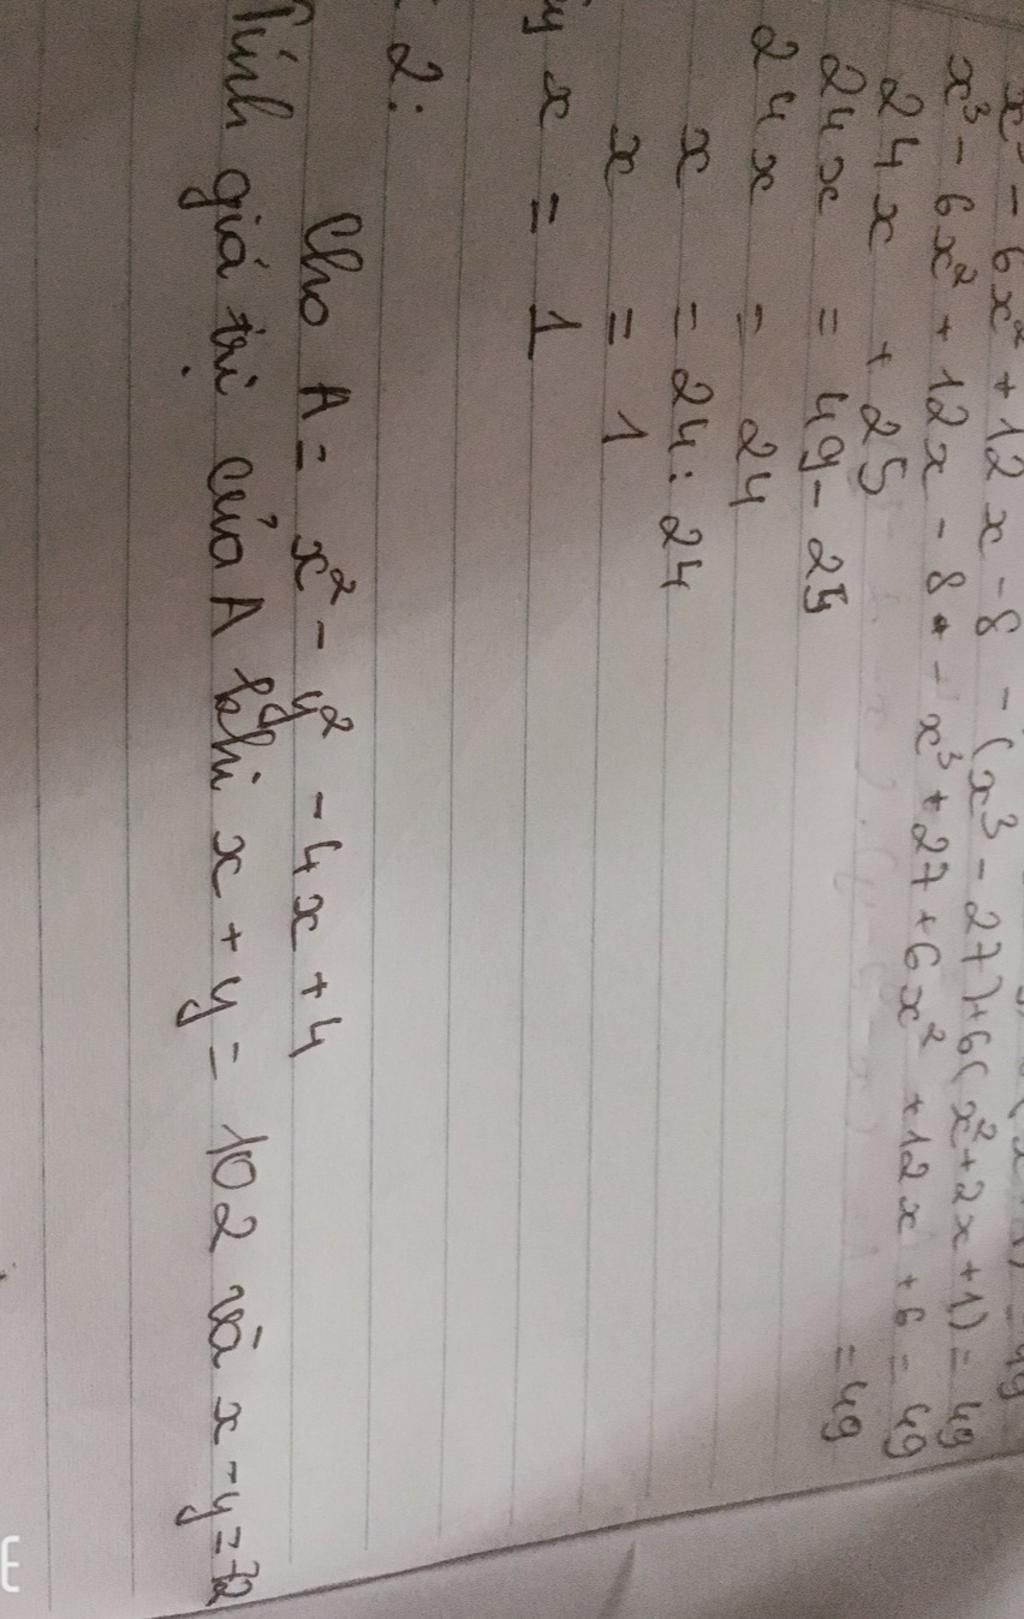 x³ - 6x² + 12x - 8 - (x³ - 27) + 6(x² + 2x + 1) = 49
x³ - 6x² + 12x - 8 - x³ + 27 + 6x² + 12x + 6 = 49
24x + 25 = 49
24x = 49 - 25
24x = 24
x = 24 : 24
x = 1
x = 1
2:
Cho A = x² - y² - 4x + 4
Tính giá trị của A khi x + y = 102 và x - y =